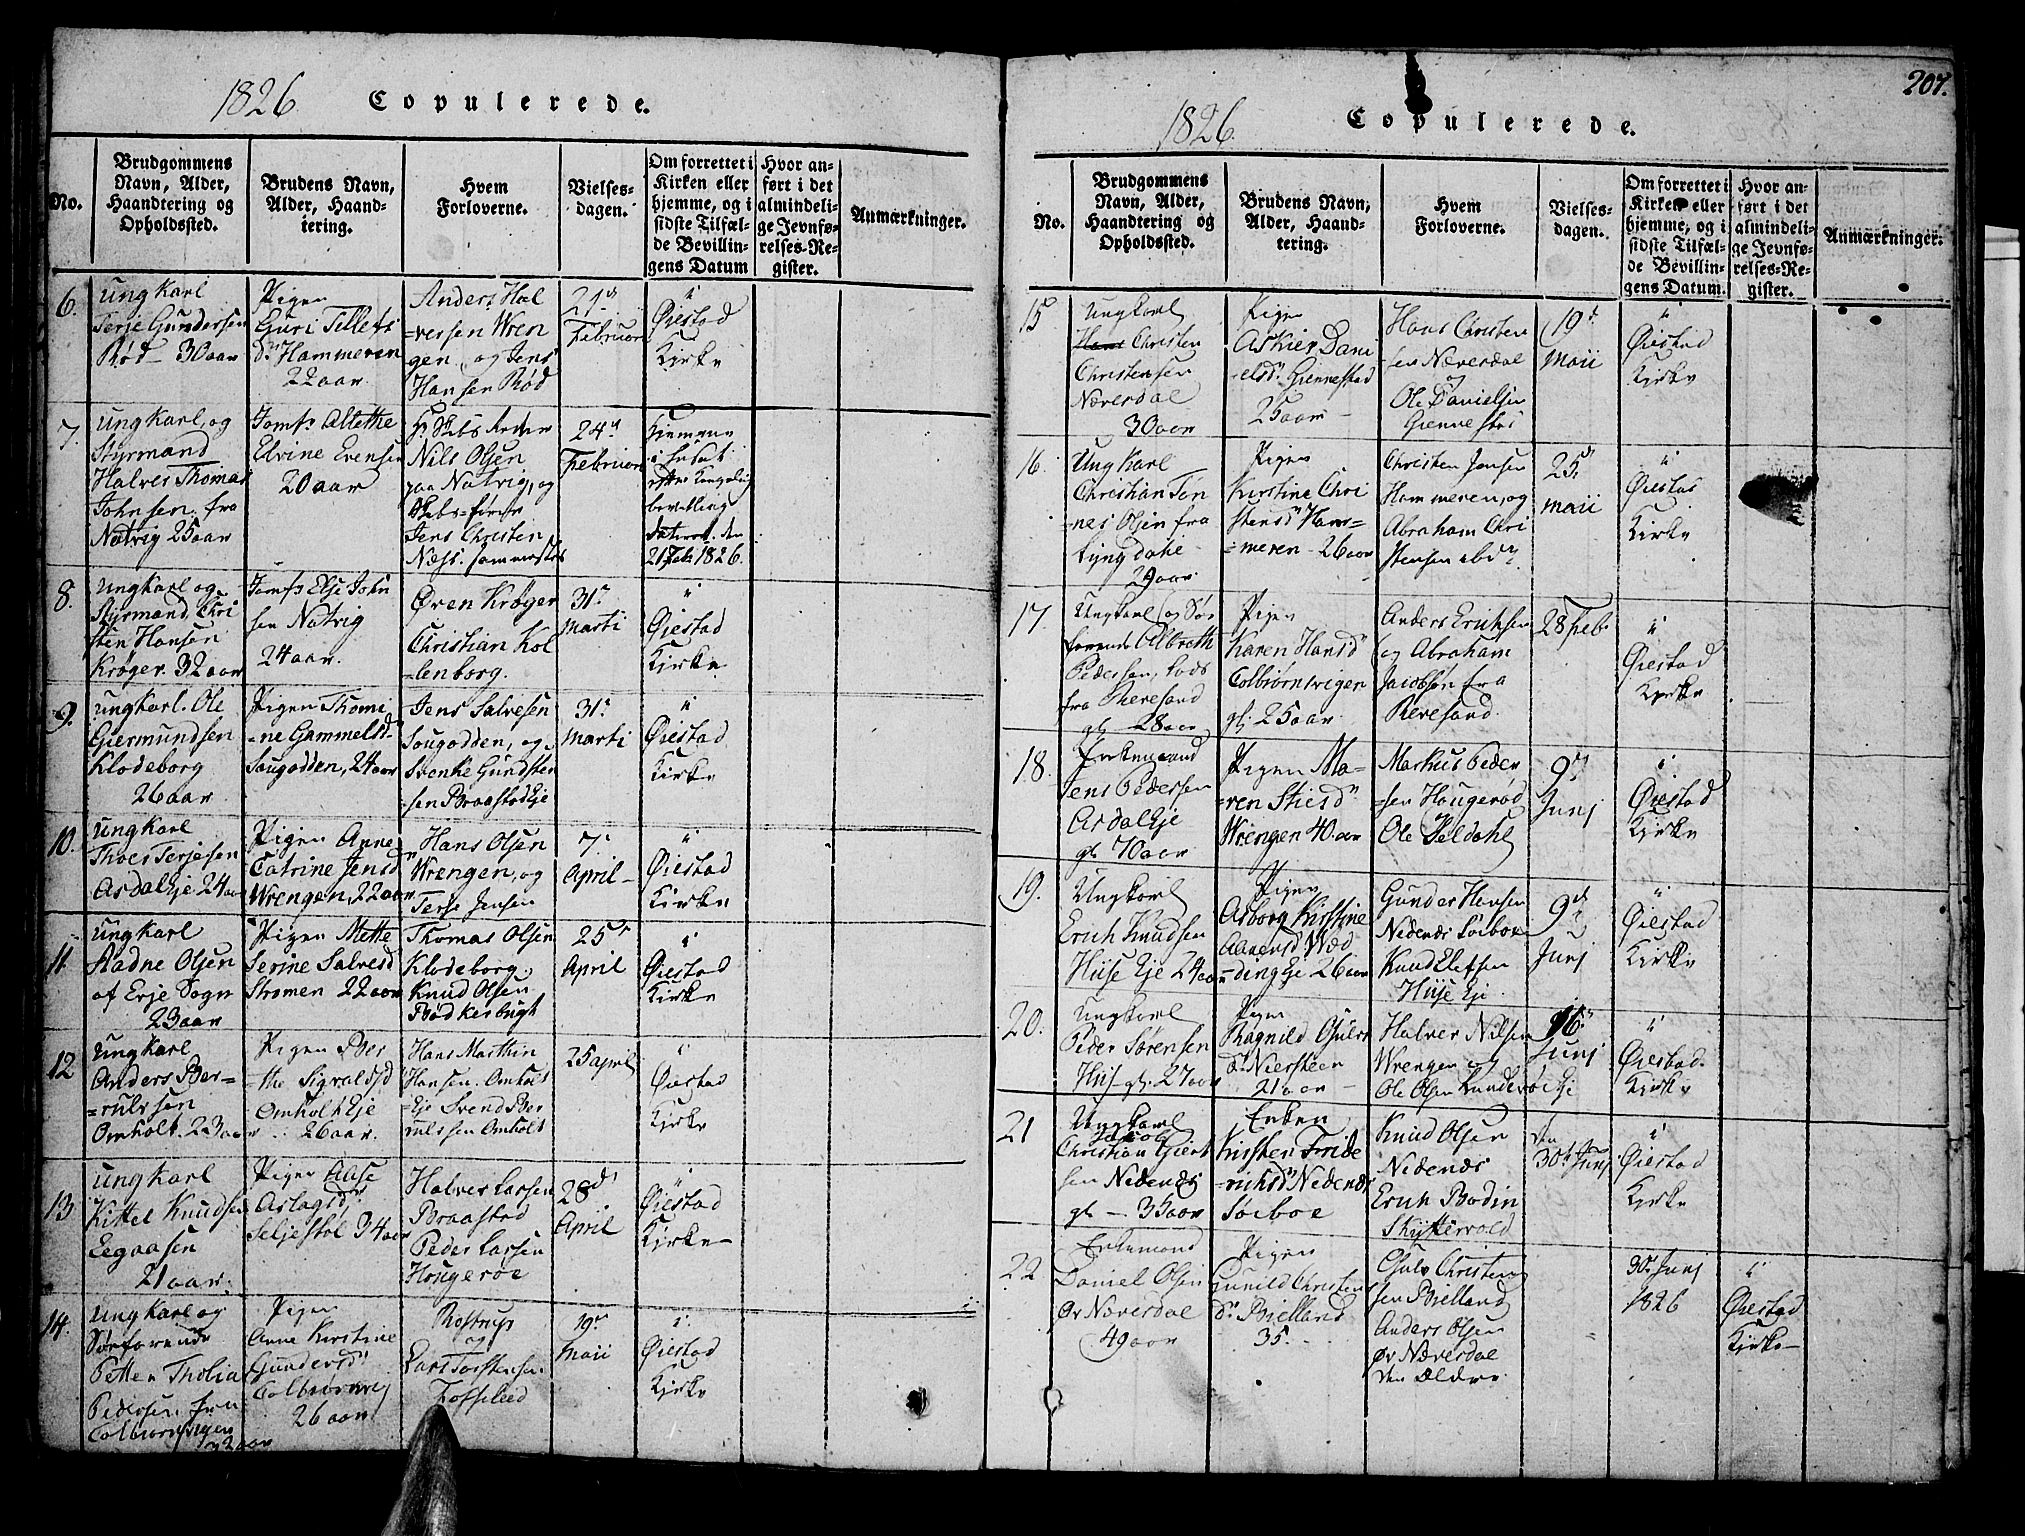 1826. Copulerede.
No.
Brudgommens
Navn, Alder,
Haandtering og
Opholdssted.
Brudens Navn,
Alder, Haand-
tering.
Hvem
Forloverne.
Vielses-
dagen.
Om forrettet i
Kirken eller
hjemme, og i
sidste Tilfæl-
de Bevillin-
gens Datum
Hvor an-
ført i det
almindeli-
ge Jevnfø-
relses-Re-
gister.
Anmærkninger.
6.
Ung Karl
Terje Gundersen
Rød - 30 aar
Pigen
Guri Tillefs
dr Hammeren
22 aar.
Anders Hal
=versen Wren
gen, og Jens
Hansen Rød
21de
Februar
"
Øiestad
Kirke
7.
Ung Karl, og
Styrmand
Halver Thomas
Johnsen fra
Natvig 25 aar
Jomfr Allethe
Elvine Evensen
20 aar
Nils Olsen
paa Natvig, og
Skibsfører
Jens Christen
Næss. sammesteds
24de
Februar
Hjemme
i Huset
bevilling
dateret den
21 Feb. 1826.
8.
Ung Karl og
Styrmand Chri
sten Hansen
Krøger. 32 aar
Jomfr Else John
sen Natvig
24 aar.
Øven Krøger
Christian Kol
=lenborg.
31te
Marti
"
Øiestad
Kirke
9.
Ung Karl. Ole
Giermundsen
Klodeborg
26 aar
Pigen Thomi
=ne Gammelsdr
Sougodden, 24 aar
Jens Salvesen
Sougodden, og
Svenke Gundsten
=sen Braastad Eje
31te
Marti
"
Øiestad
Kirke
10.
Ung Karl
Thoer Terjesen
Asdal Eje 24 aar
Pigen Anne
Catrine Jensdr
Wrengen, 22 aar
Hans Olsen
Wrengen, og
Terje Jensen
7de
April
"
Øiestad
Kirke
11.
Ung Karl
Aadne Olsen
af Erje Sogn
23 aar
Pigen Mette
Serine Salvesdr
Strømen 22 aar
Thomas Olsen
Klodeborg
Knud Olsen
Bødkerbugt
25de
April
"
Øiestad
Kirke
12
Ung Karl
Anders Ber=
=rulvsen
Omholt. 23 aar
Pigen Ber
=the Sigvaldsdr
Omholt Eje
26 aar.
Hans Marthin
Hansen. Omholt
=Eje Svend Ber
rulvsen Omholt
25 april
"
Øiestad
Kirke
13
Ung Karl
Kittel Knudsen
Eegaasen
21 aar.
Pigen Aase
Aslagsdr
Seljestøl 34 aar
Halver Larsen
Braastad
Peder Larsen
Hougerøe
28de
April
"
Øiestad
Kirke
14.
Ung Karl og
Sørfarende
Petter Tholias
Pedersen fra
Colbiørnsvigen
Pigen
Anne Kirstine
Gundersdr
Colbiørnsvig
26 aar
Rostrup
og
Lars Torstensen
19de
Maii
"
Øiestad
Kirke
207.
1826. Copulerede.
No.
Brudgommens
Navn, Alder,
Haandtering og
Opholdssted.
Brudens Navn,
Alder, Haand-
tering.
Hvem
Forloverne.
Vielses-
dagen.
Om forrettet i
Kirken eller
hjemme, og i
sidste Tilfæl-
de Bevillin-
gens Datum.
Hvor an-
ført i det
almindeli-
ge Jevnfø-
relses-Re-
gister.
Anmærkninger.
15
Ung Karl
Christen
Christensen
Næverdal
30 aar
Pigen
Askier Dani
elsdr Giennestad
25 aar -
Hans Christen
sen Næverdal
og
Ole Danielsen
Giennestad
19de
Maii
"
Øiestad
Kirke
16.
Ung Karl
Christian Tøn
=nes Olsen fra
Lyngdahl
29 aar
Pigen
Kirstine Chri
stensdr Ham=
=meren - 26 aar
Christen Jensen
Hammeren, og
Abraham Chri
stensen ibid
25de
Maii
"
Øiestad
Kirke
17.
Ung Karl og Sør
farende Albreth
Pedersen, Lods
fra Reresand
gl. 28 aar
Pigen
Karen Hansdr
Colbiørnsvigen
gl. 25 aar
Anders Erichsen
og Abraham
Jacobsen fra
Reresand.
28 Feb.
"
Øiestad
Kirke
18.
Enkemand
Jens Pedersen
Asdal Eje
gl. 70 aar
Pigen Ma=
=ren Stiesdr
Wrengen 40 aar
Markus Peder
=sen Hougerød
Ole Seldahl
9de
Junj
"
Øiestad
Kirke
19.
Ung Karl
Erich Knudsen
Hiise Eje 24 aar
Pigen
Asborg Kirstine
Aanensdr Wæd
=ding Eje 26 aar
Gunder Hansen
Nedenæs Søeboe
Knud Elefsen
Hiise Eje
9de
Junj
"
Øiestad
Kirke
20.
Ung Karl
Peder Sørensen
Huf gl. 27 aar
Pigen
Ragnild Gulvs
dr Niersteen
21 aar -
Halver Nilsen
Wrengen og
Ole Olsen Lunderøe Eje
16de
Junj
"
Øiestad
Kirke
21
Ung Karl
Jacob
Christian Giert
sen Nedenæs
gl. - 33 aar
Enken
Kirsten Fride
=richsdr Nedenæs
Søeboe
Knud Olsen
Nedenæs
Erich Bodin
Skytterwold
den
30te Junj
"
Øiestad
Kirke
22
Enkemand
Daniel Olsen
Øv Næverdal
49 aar
Pigen
Gunild Christen
dr Bielland
35.
Gulv Christen
sen Bielland
Anders Olsen
Øv Næverdal
den Ældre
30te Junj
1826
"
Øiestad
Kirke